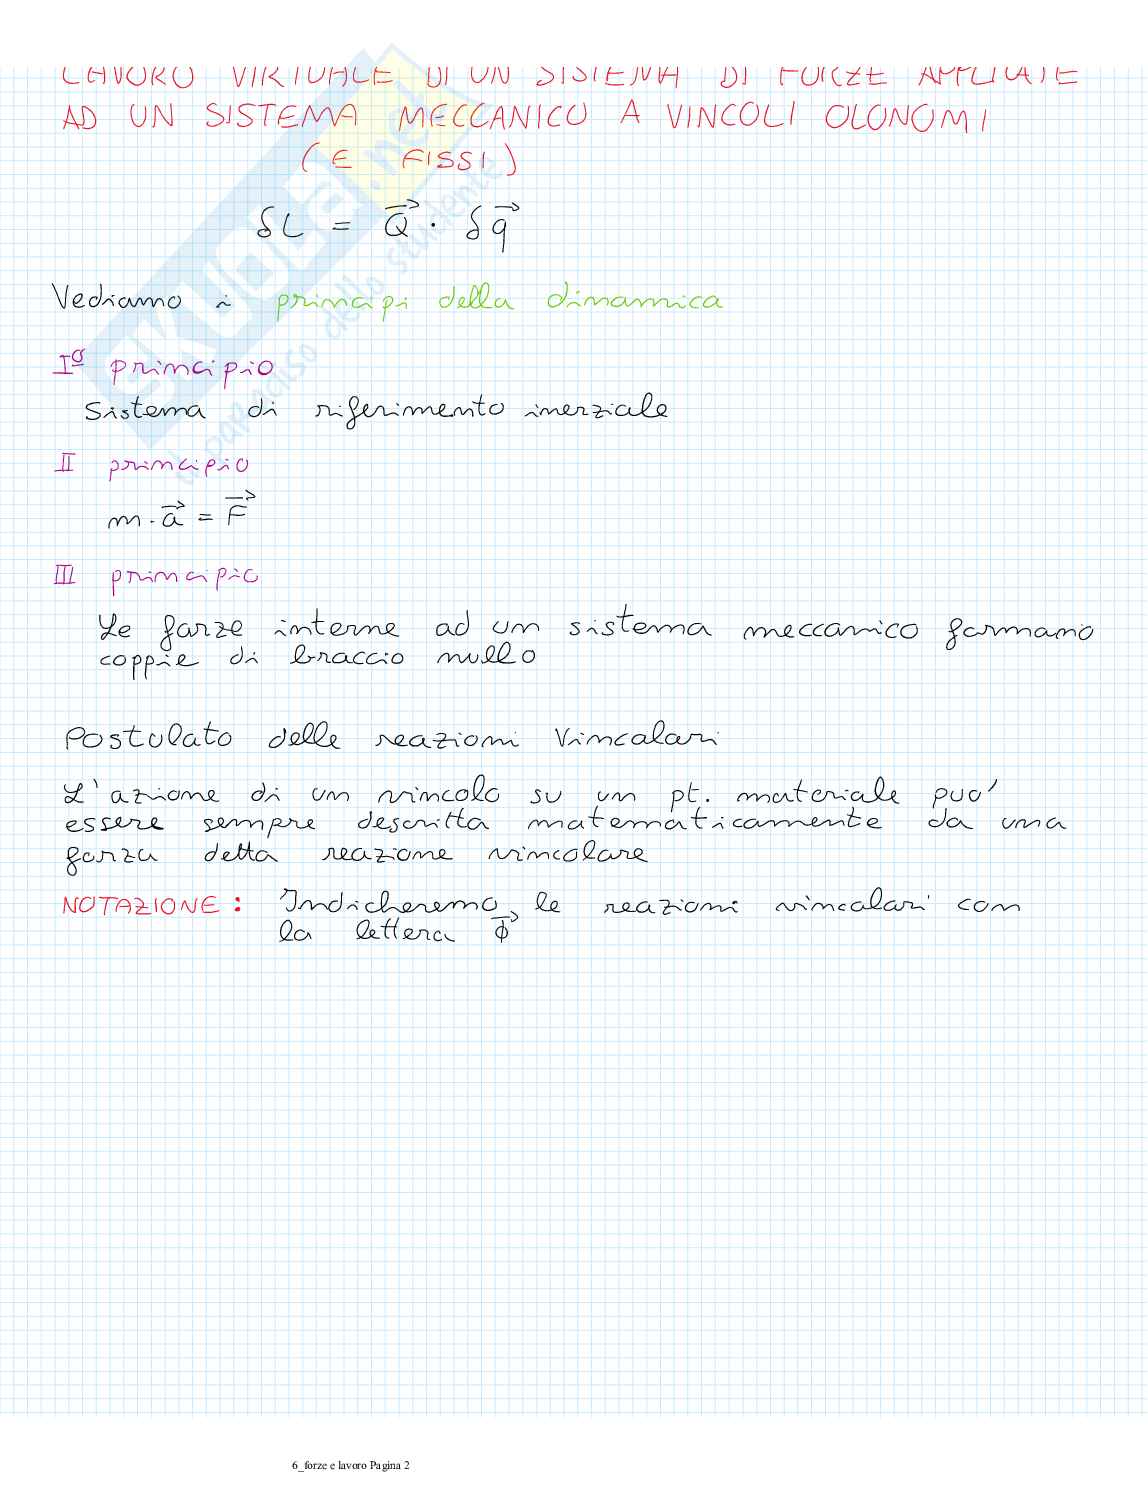 LAVORO VIRTUALE DI UN SISTEMA DI FORZE APPLICATE
AD UN SISTEMA MECCANICO A VINCOLI OLONOMI
(E FISSI)
δL = Q⃗ · δq⃗
Vediamo i principi della dinamica
Iº principio
Sistema di riferimento inerziale
II principio
m · a⃗ = F⃗
III principio
Le forze interne ad un sistema meccanico formano
coppie di braccio nullo
Postulato delle reazioni Vincolari
L'azione di un vincolo su un pt. materiale puo'
essere sempre descritta matematicamente da una
forza detta reazione vincolare
NOTAZIONE: Indicheremo le reazioni vincolari con
la lettera Φ⃗
SKUOLA.net
il paradiso dello studente
6_forze e lavoro Pagina 2